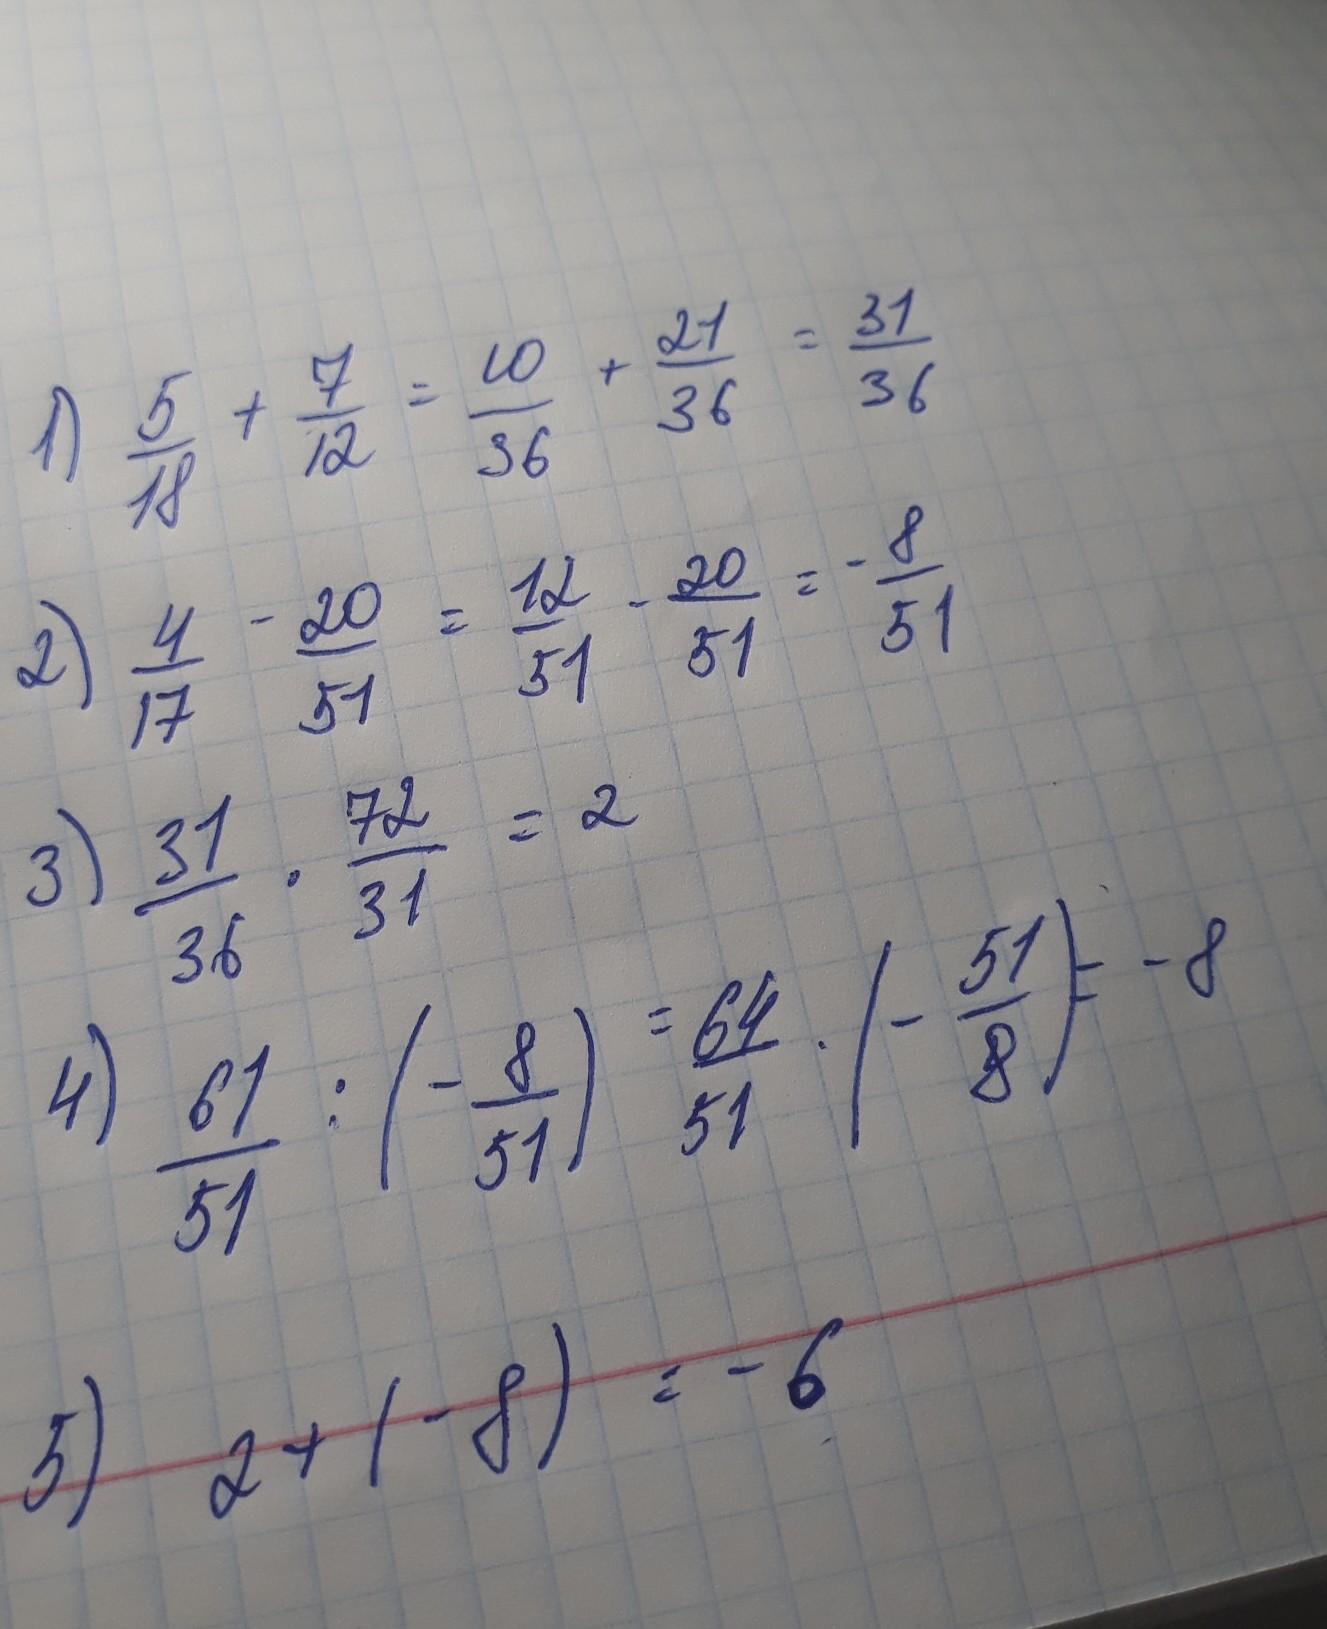 1) 5/18 + 7/12 = 10/36 + 21/36 = 31/36
2) 4/17 - 20/51 = 12/51 - 20/51 = - 8/51
3) 31/36 · 72/31 = 2
4) 61/51 : (- 8/51) = 64/51 · (- 51/8) = - 8
5) 2 + (- 8) = - 6